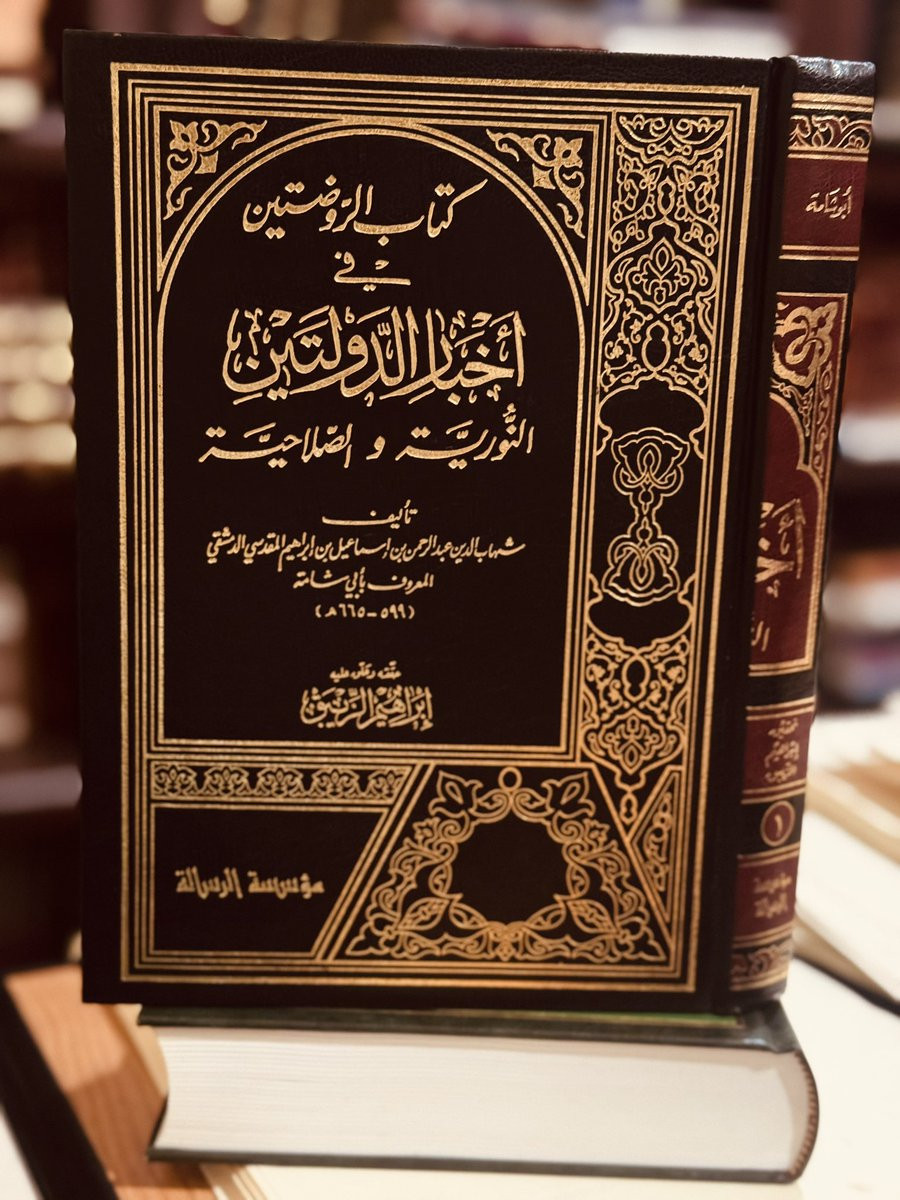 كتاب الرّوضتين
في
أَخْبَارِ الدَّوْلَتَيْنِ
النُّوريَّة و الصّلاحيَّة
تأليف
شهاب الدين عبد الرحمن بن إسماعيل بن إبراهيم المقدسي الدمشقي
المعروف بأبي شامة
(٥٩٩-٦٦٥هـ)
حققه وعلق عليه
إبراهيم الزيبق
مؤسسة الرسالة
أبو شامة
حققه
إبراهيم
الزيبق
١
مؤسسة
الرسالة